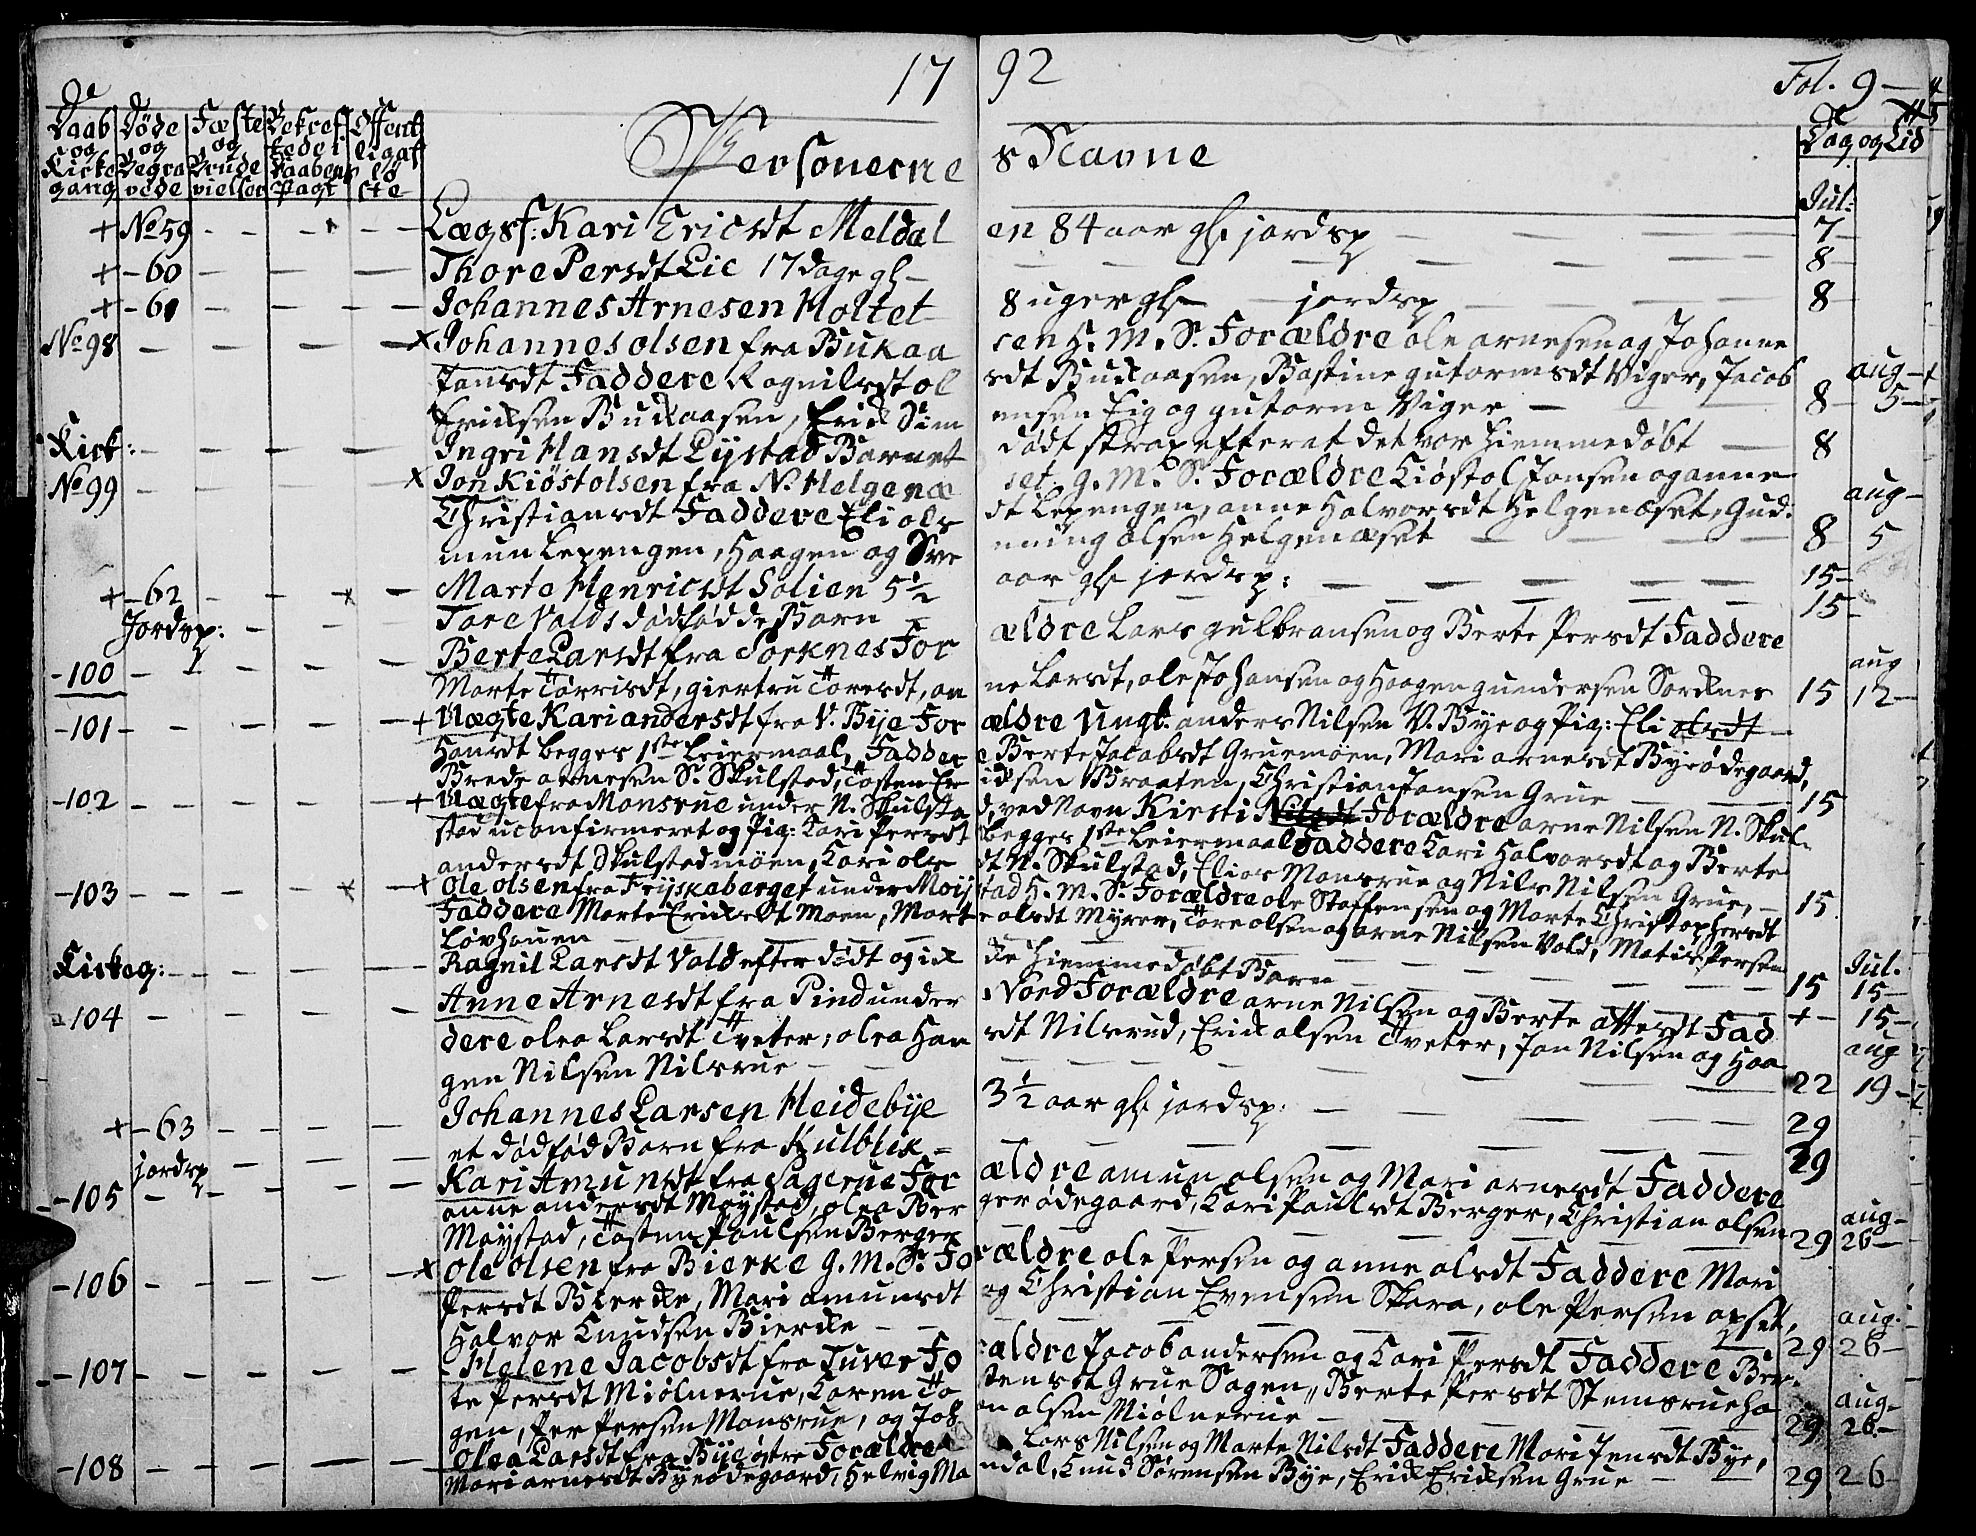 1792 Fol. 9
De
Daab og Kirke gang
Døde og Begra vede
Fæste og Brude vielser
Bekref tede i Daabens Pagt
Offent ligaf lø ste
Personernes Navne
De Dag og Tid
Jul:
+ No 59 Lægsf: Kari Ericsdt Meldal en 84 aar gl: jordsp 7
+ - 60 Thore Persdt Lie 17 dage gl - 8
+ - 61 Johannes Arnesen Holtet 8 uger gl jordsp 8
No 98 x Johannes olsen fra Bukaa sen H. M. S. Forældre ole arnesen og Johanne
Jansdt Faddere Ragnilsdt ol sdt Bukaasen, Bastine gutormsdt Viger, Jacob aug
Eriksen Bukaasen, Erik Sim ensen Eig og gutorm Viger 8 5
Kirk: Ingri Hansdt Lystad Barnet dødt strax efter at det var hiemmedøbt 8
No 99 x Jon Kiøstolsen fra N. Helgenæ set. g. M. S. Forældre Kiøstol Jonsen og anne aug
Christiansdt Faddere Eli ols dt Lepengen, anne Halvorsdt Helgenæset, Gud:
mun Lepengen, Haagen og Sve nning olsen Helgenæset 8 5
+ - 62 Marte Henricsdt Solien 5½ aar gl jordsp: 15
Jordsp: Tore Volds dødfødde Barn 15
- 100 Berte Larsdt fra Sorknes For ældre Lars gulbransen og Berte Persdt Faddere aug
Marte Tørrisdt, giertru Toresdt, an ne Larsdt, ole Johansen og Haagen gundersen Sorknes 15 12
- 101 + Uægte Kari andersdt fra V. Bye For ældre Ungk: anders Nilsen V. Bye og Pig: Eli olsdt
Hansdt begges 1ste Leiermaal, Fadder e Berte Jacobsdt Gruemoen, Mari arnesdt Byeødegaard,
Brede arnesen S. Skulstad, Tosten Er iksen Braaten, Christian Jansen Grue 15
- 102 + Uægte fra Monsrue under N. Skulsta d, ved Navn Kirsti Nilsdt Forældre arne Nilsen N. Skul-
stad uconfirmeret og Pig: Kari Persdt begges 1ste Leiermaal Faddere Kari Halvorsdt og Berte
andersdt Skulstadmoen, Kari ols dt N. Skulstad, Elias Monsrue og Nils Nilsen Grue, 15
- 103 x Ole olsen fra Fryskaberget under Moys tad H. M. S. Forældre ole Staffensen og Marte Christophersdt
Faddere Marte Eriksdt Moen, Mart e olsdt Myrer, Tore olsen og arne Nilsen Vold, Matis Persen
Løvhauen
Kirkeg: Ragnil Larsdt Vold efter dødt og ik ke hiemmedøbt Barn 15 Jul. 15
- 104 Anne Arnesdt fra Pind under Nord Forældre arne Nilsen og Berte attesdt Fad + 15
dere olea Larsdt Tveter, olea Han sdt Nilsrud, Erik olsen Tveter, Jon Nilsen og Haa aug
gen Nilsen Nilsrue 22 19
+ - 63 Johannes Larsen Heidebye 3½ aar gl jordsp: 29
jordsp et dødfød Barn fra Kulblik 29
- 105 Kari Amunsdt fra Sagerue For ældre amun olsen og Mari arnesdt Faddere
anne andersdt Moystad, olea Ber ger ødegaard, Kari Paulsdt Berger, Christian olsen aug
Moystad, Tosten Paulsen Berger 29 26
- 106 x Ole olsen fra Bierke g. M. S. Fo rældre ole Persen og anne olsdt Faddere Mari
Persdt Bierke, Mari amunsdt og Christian Evensen Skara, ole Persen opset, aug.
Halvor Knudsen Bierke 29 26
- 107 Helene Jacobsdt fra Tuver Fo rældre Jacob andersen og Kari Persdt Faddere Ber
te Persdt Miølnerue, Karen To stensdt Grue Sagen, Berte Persdt Stemsrueha aug
gen, Per Persen Monsrue, og Joh an olsen Miølnerue 29 26
- 108 Olea Larsdt fra Bye østre Forældre Lars Nilsen og Marte Nilsdt Faddere Mari Jensdt Bye,
Mari arnesdt Byeødegaard, Helvig Ma ndal, Knud Sørensen Bye, Erik Eriksen Grue 29 26